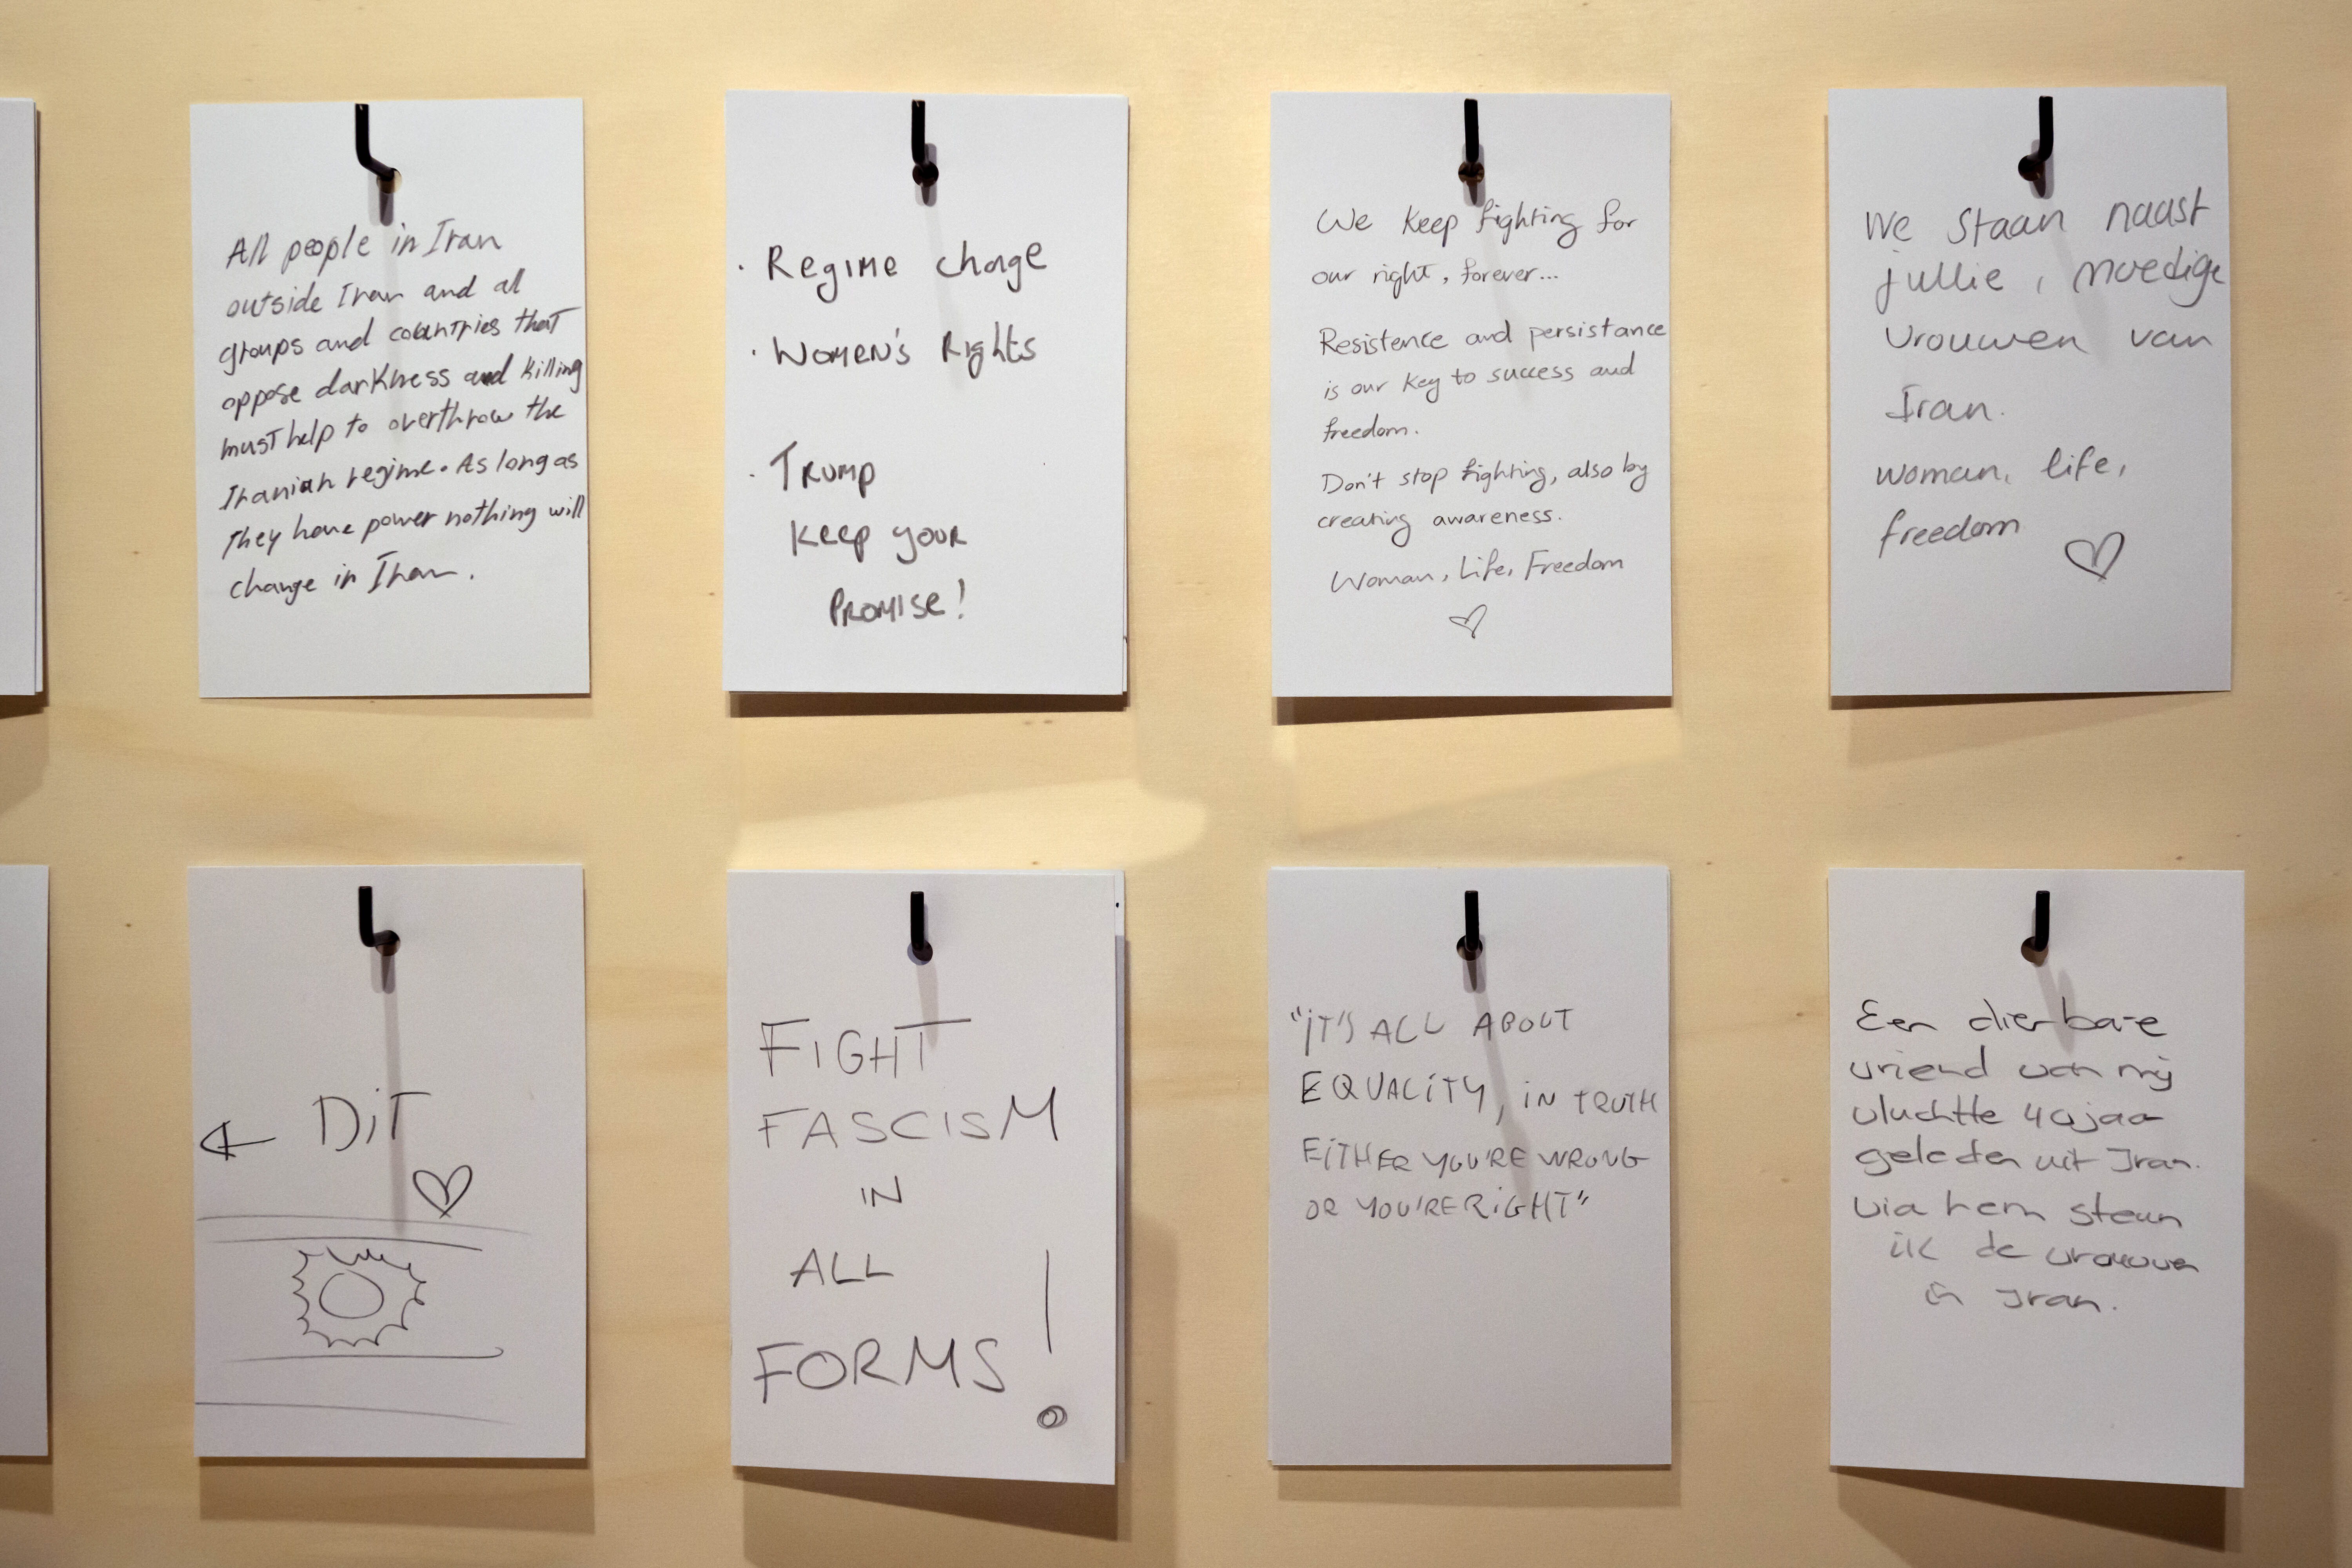 All people in Iran
outside Iran and all
groups and countries that
oppose darkness and killing
must help to overthrow the
Iranian regime. As long as
They have power nothing will
change in Iran.
· Regime change
· Women's Rights
· Trump
keep your
Promise!
We keep fighting for
our right, forever...
Resistence and persistance
is our key to success and
freedom.
Don't stop fighting, also by
creating awareness.
Woman, Life, Freedom
We staan naast
jullie, moedige
vrouwen van
Iran.
woman, life,
freedom
← DiT
FIGHT
FASCISM
IN
ALL
FORMS!
"iT'S ALL ABOUT
EQUALITY, IN TRUTH
EITHER YOU'RE WRONG
OR YOU'RE RIGHT"
Een dierbare
vriend van mij
vluchtte 40 jaar
geleden uit Iran.
via hem steun
ik de vrouwen
in Iran.